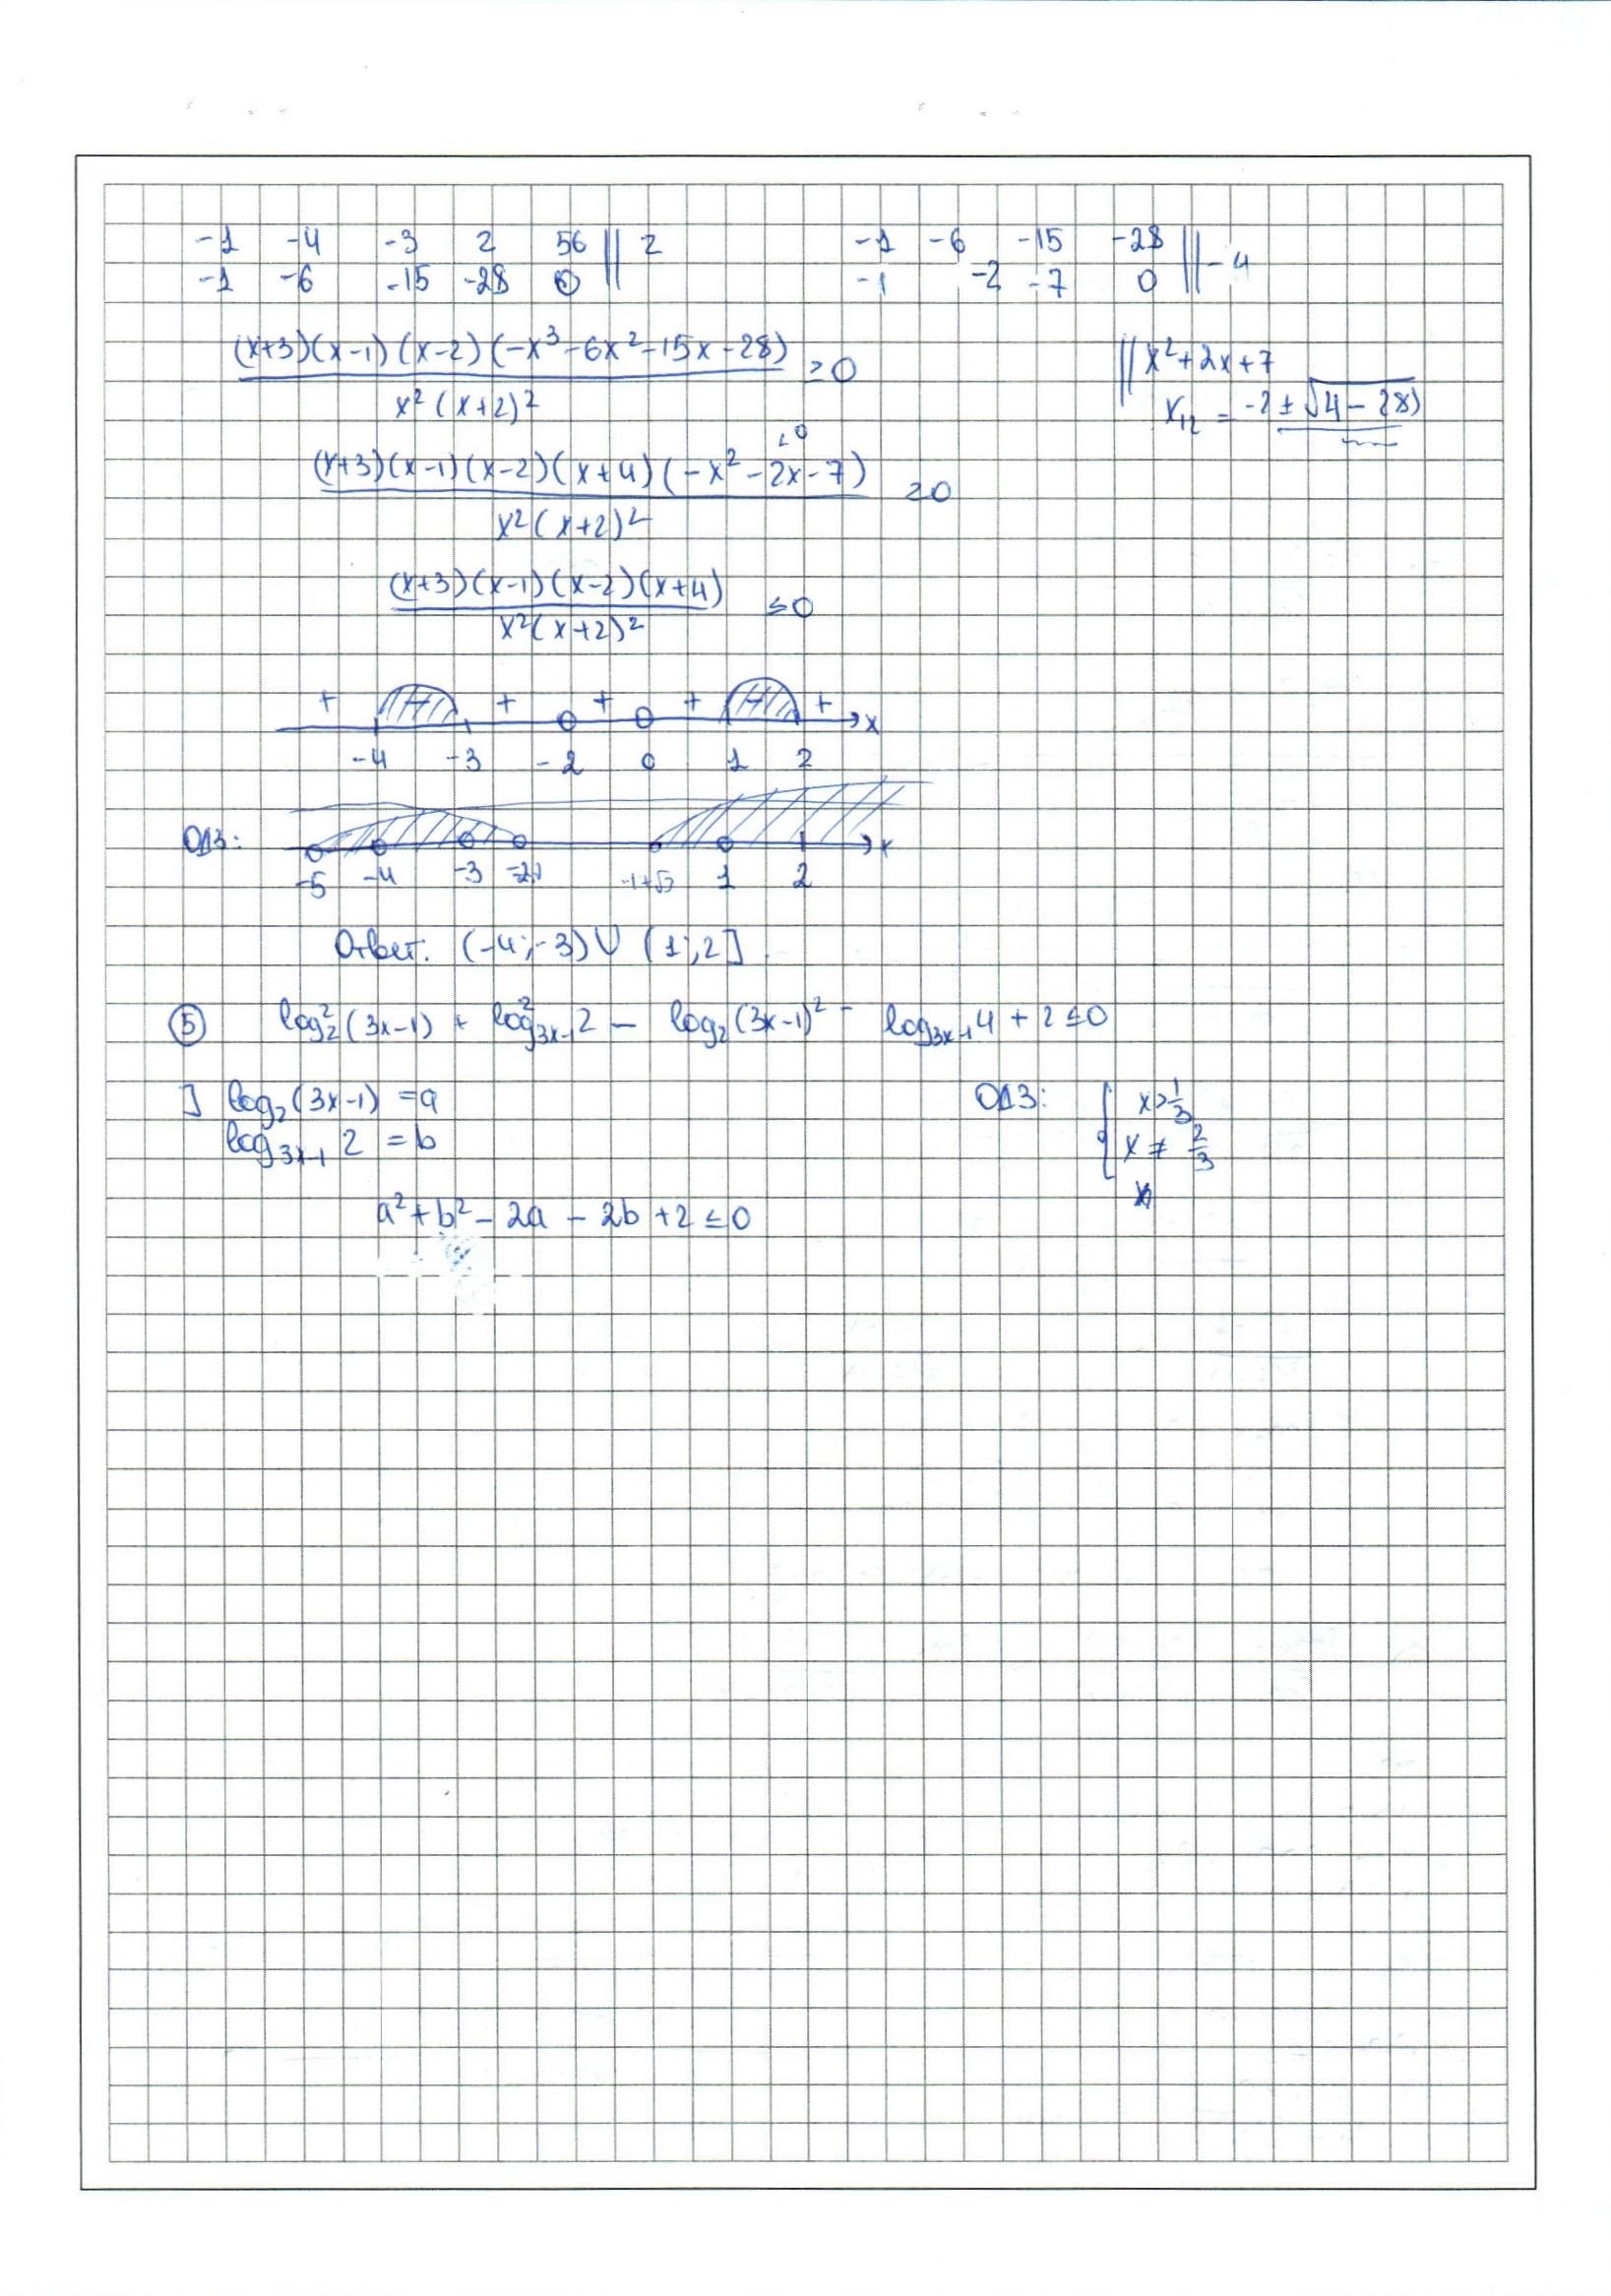 -1 -4 -3 2 56 || 2
-1 -6 -15 -28 0
-1 -6 -15 -28 || -4
-1 -2 -7 0
(x+3)(x-1)(x-2)(-x³-6x²-15x-28) ≥0
x²(x+2)²
|| x²+2x+7
x₁₂ = -2±√4-28)
<0
(x+3)(x-1)(x-2)(x+4)(-x²-2x-7) ≥0
x²(x+2)²
(x+3)(x-1)(x-2)(x+4) ≤0
x²(x+2)²
+ - + + + - + x
-4 -3 -2 0 1 2
ОДЗ: x
-5 -4 -3 -1+√7 1 2
Ответ: (-4;-3)∪(1;2]
⑤ log₂²(3x-1) + log²₃ₓ₋₁2 - log₂(3x-1)² - log₃ₓ₋₁4 + 2 ≤0
] log₂(3x-1) = a
log₃ₓ₋₁ 2 = b
ОДЗ: { x>1/3
x ≠ 2/3
a²+b²-2a-2b+2≤0